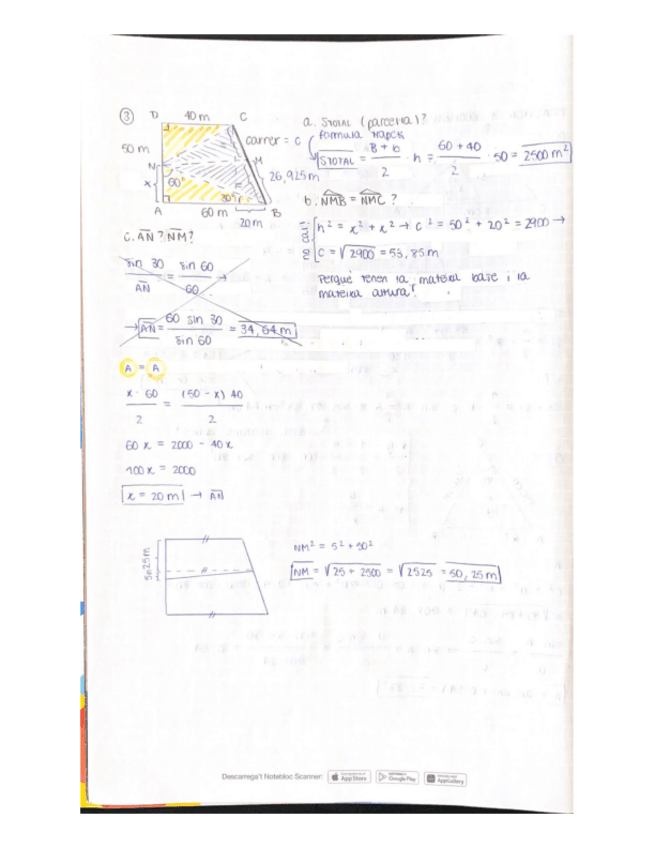 ③ D 40 m C
50 m
N
x
60°
30°
A 60 m B
20 m
M
carrer = c
26,925 m
a. STOTAL (parcel·la)?
fórmula trapezi
STOTAL = B + b / 2 · h = 60 + 40 / 2 · 50 = 2500 m²
b. NMB = NMC ?
no cal: h² = x² + x² → c² = 50² + 20² = 2900 →
c = √2900 = 53,85 m
Perquè tenen la mateixa base i la
mateixa altura!
c. AN ? NM ?
sin 30 / AN = sin 60 / 60 →
→ AN = 60 sin 30 / sin 60 = 34,64 m
A = A
x · 60 / 2 = (50 - x) 40 / 2
60 x = 2000 - 40 x
100 x = 2000
x = 20 m → AN
25 m
5m
NM² = 5² + 50²
NM = √25 + 2500 = √2525 = 50,25 m
Descarrega't Notebloc Scanner:
App Store
Google Play
AppGallery